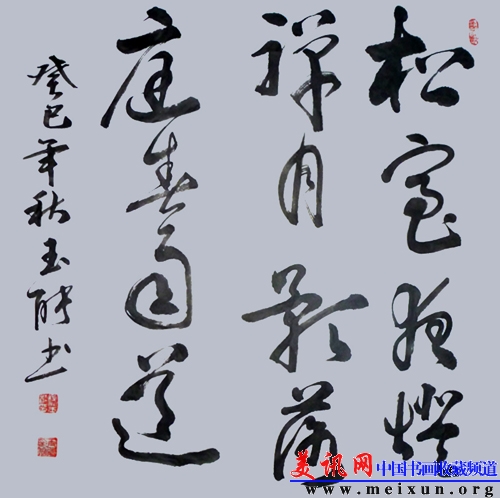 松室夜燈
禪月影
庭春雨道
癸巳年秋玉能书
美讯网 中国书画收藏频道
www.meixun.org